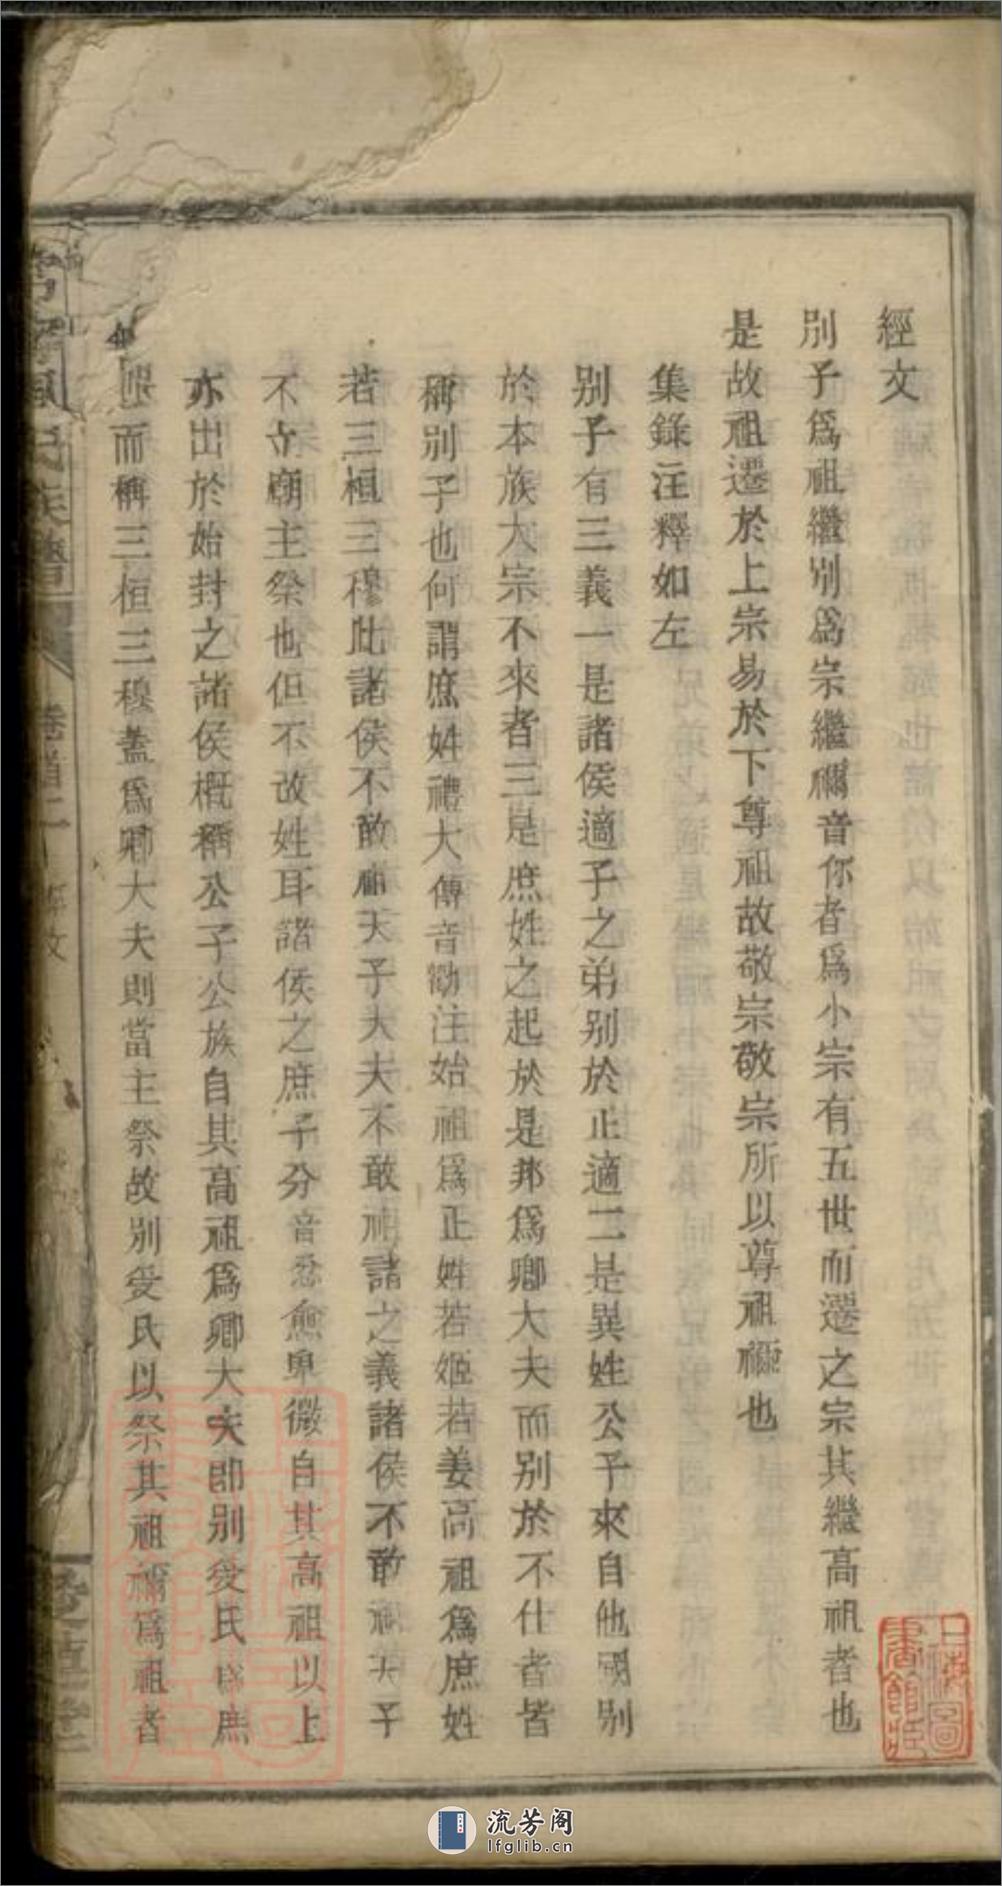 經文
別子爲祖繼別爲宗繼禰音你者爲小宗有五世而遷之宗其繼高祖者也
是故祖遷於上宗易於下尊祖故敬宗敬宗所以尊祖禰也
集錄注釋如左
別子有三義一是諸侯適子之弟別於正適二是異姓公子來自他國別
於本族大宗不來者三是庶姓之起於是邦爲卿大夫而別於不仕者皆
稱別子也何謂庶姓禮大傳音勸注始祖爲正姓若姬若姜高祖爲庶姓
若三桓三穆此諸侯不敢祖天子大夫不敢祖諸之義諸侯不敢祖天子
不立廟主祭也但不改姓耳諸侯之庶子分音忿愈卑微自其高祖以上
亦出於始封之諸侯概稱公子公族自其高祖爲卿大夫卽別受氏爲庶
而稱三桓三穆蓋爲卿大夫則當主祭故別受氏以祭其祖禰爲祖者
氏族譜
卷首二
上海圖書館藏
流芳阁
lfglib.cn